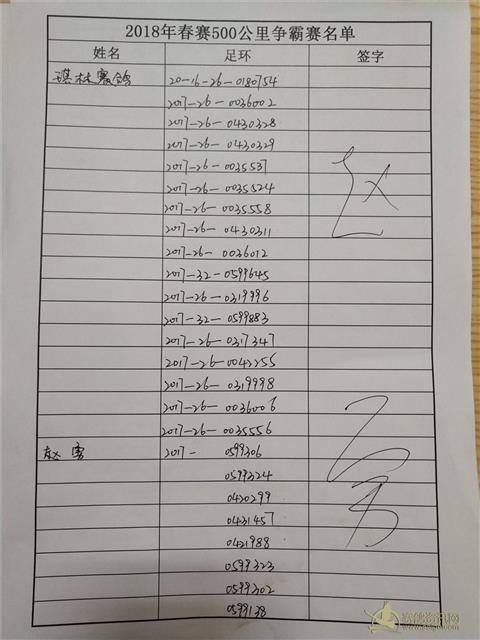 2018年春赛500公里争霸赛名单
姓名 足环 签字
琪林赛鸽 20-16-26-0180754
2017-26-0036002
2017-26-0430328
2017-26-0430329
2017-26-0035537
2017-26-0035524
2017-26-0035558
2017-26-0430311
2017-26-0036012
2017-32-0599645
2017-26-0319996
2017-32-0599883
2017-26-0317347
2017-26-0042255
2017-26-0319998
2017-26-0036006
2017-26-0035556
赵勇 2017- 0599306
0599324
0430299
0431457
0431988
0599323
0599302
0599138